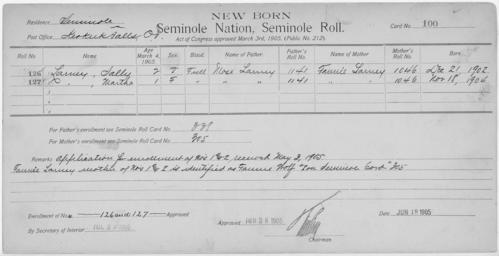 NEW BORN
Residence Seminole
Seminole Nation, Seminole Roll.
Card No. 100
Post Office,
Act of Congress approved March 3rd, 1905, (Public No. 212).
Roll No. Age March 4, 1905. Sex. Blood. Name of Father. Father's Roll No. Name of Mother. Mother's Roll No. Born.
126 Larney, Sally 2 F Full Mose Larney 1141 Fannie Larney 1046 Dec 21, 1902
127 " , Martha 1 F " " " 1141 " " 1046 Nov 18, 1904
For Father's enrollment see Seminole Roll Card No.
For Mother's enrollment see Seminole Roll Card No. 205
Remarks Application for enrollment of No's 1 & 2 received May 2, 1905
Fannie Larney mother of No's 1 & 2 is identified as Fannie Wolf on Seminole Card 205
Enrollment of No. 126 and 127 Approved
By Secretary of Interior
Approved 1905.
Chairman
Date JUN 1905